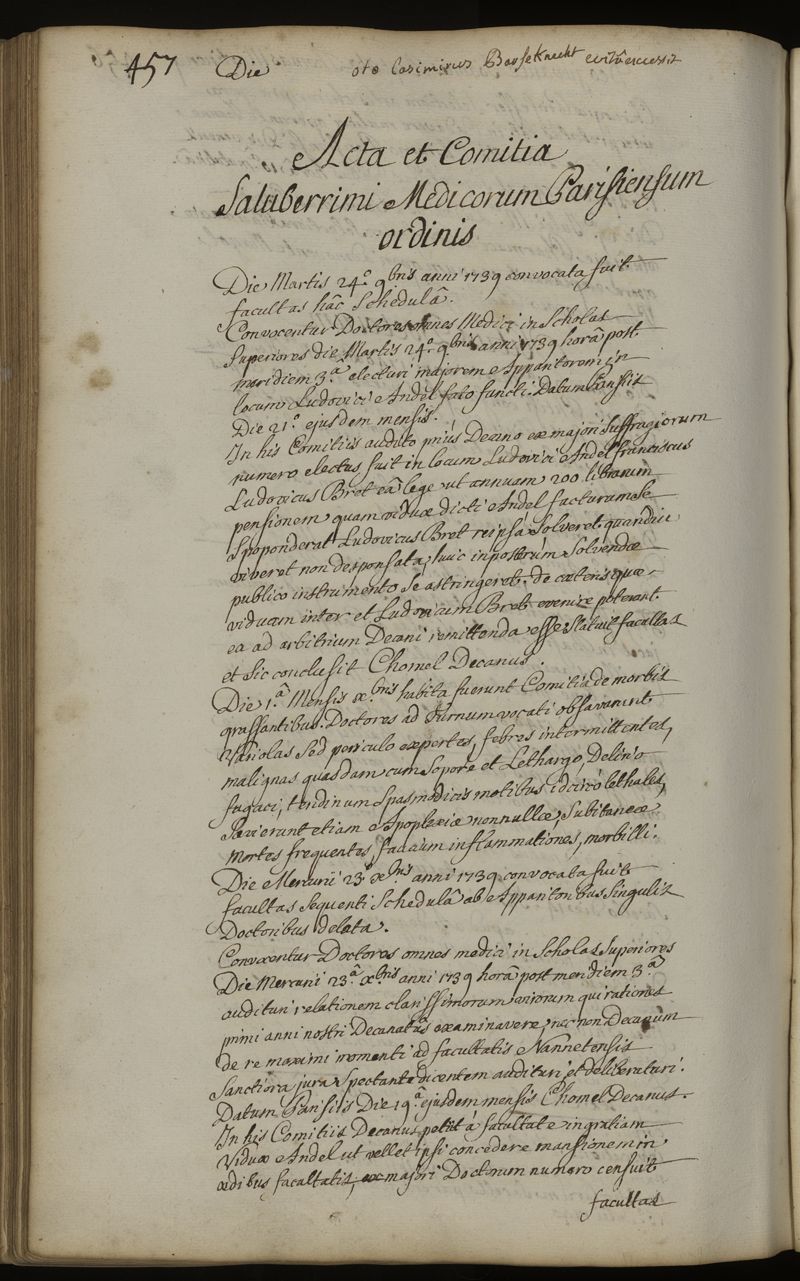 457 Die oto Casimirus
Acta et Comitia
Saluberrimi Medicorum Parisiensum
ordinis
Die Martis 24.º 9bris anni 1739 convocata fuit
facultas hâc Schedulâ.
Convocentur Doctores omnes Medici in Scholas
Superiores die Martis 24.º 9bris anni 1739 horâ post
meridiem 3.ª electuri majorem Apparitorem in
locum Ludovici Andel fato functi. Datum Parisiis
Die 21.º ejusdem mensis.
In his Comitiis audito priùs Decano ex majori Suffragiorum
numero electus fuit in locum Ludovici Andel franciscus
Ludovicus Bret eâ lege ut annuam 200 librarum
pensionem quam viduæ dicti Andel facturum se
Spoponderat Ludovicus Bret reipsâ Solveret quandiu
viveret non desponsata, huic in posterum Solvendæ
publico instrumento Se astringeret. de cæteris quæ
viduam inter et Ludovicum Bret evenire poterant
ea ad arbitrium Decani remittenda esse Statuit facultas
et Sic conclusit Chomel Decanus.
Die 1.ª Mensis xbris habita fuerunt Comitia de morbis
grassantibus. Doctores ad turnum vocati observarunt
Variolas Sed periculo expertes, febres intermittentes,
malignas quasdam cum Sopore et Lethargo, Delirio
fugaci, tendinum Spasmodicis motibus idcirco lethales,
Sævierunt etiam Apoplexiæ nonnullæ, Subitaneæ
mortes frequentes, faucium inflammationes, morbilli.
Die Mercurii 23ª xbris anni 1739 convocata fuit
facultas Sequenti Schedulâ ab Apparitoribus Singulis
Doctoribus delata.
Convocentur Doctores omnes medici in Scholas Superiores
Die Mercurii 23.ª xbris anni 1739 horâ post meridiem 3.ª
audituri relationem clarissimorum virorum qui rationes
primi anni nostri Decanatûs examinavere, nec non Decanum
de re maximi momenti ad facultatis Nannetensis
Sanctiora jura Spectante dicentem audituri, et deliberaturi.
Datum Parisiis Die 19.ª ejusdem mensis Chomel Decanus.
In his Comitiis Decanus petiit à facultate in gratiam
Viduæ Andel ut vellet ipsi concedere mansionem in
ædibus facultatis, ex majori Doctorum numero censuit
facultas